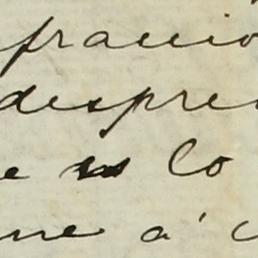 fraccio
despre
e es lo
ne á c